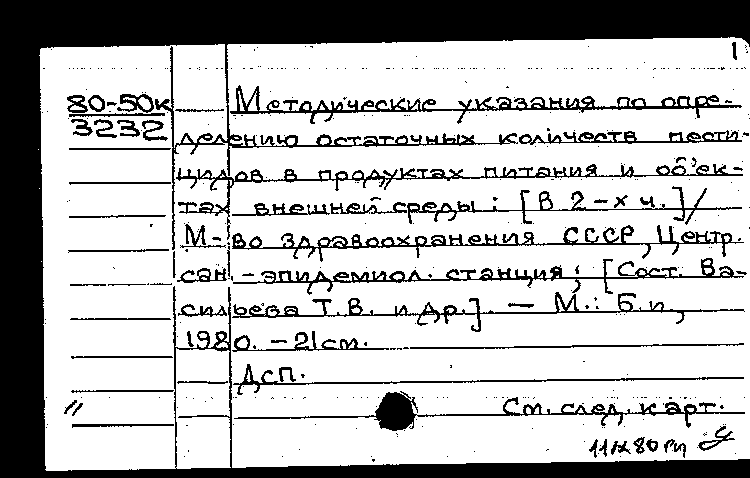 1
80-50к
3232
Методические указания по опре-
делению остаточных количеств пести-
цидов в продуктах питания и объек-
тах внешней среды: [В 2-х ч.]/
М-во здравоохранения СССР, Центр.
сан-эпидемиол. станция; [Сост. Ва-
сильева Т.В. и др.]. — М.: Б.и,
1980. – 21см.
Дсп.
См. след. карт.
11IX80